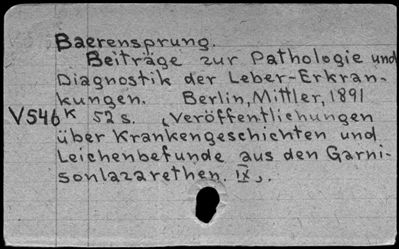 Baerensprung.
Beiträge zur Pathologie und
Diagnostik der Leber-Erkran-
kungen. Berlin, Mittler, 1891
V546K 52 s. „Veröffentlichungen
über Krankengeschichten und
Leichenbefunde aus den Garni-
sonlazarethen. IX„.